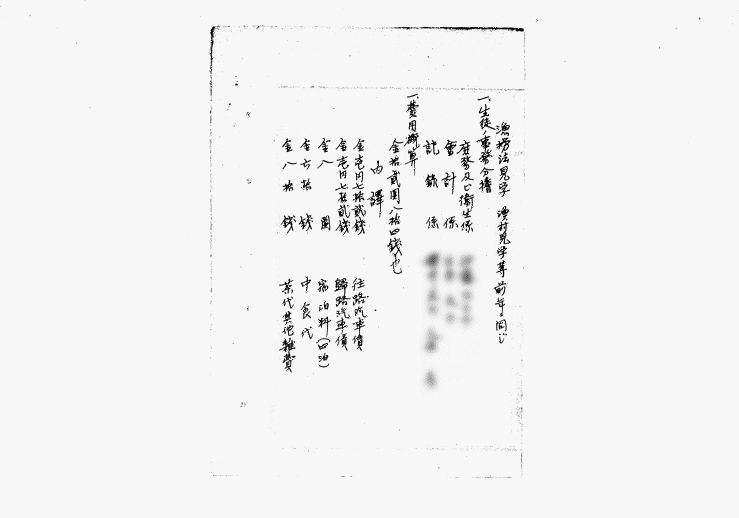 漁撈法見学 漁村見学等 前年ニ同シ
一、生徒ノ事務分擔
庶務及ビ衞生係
會計係
記録係
一、費用概算
金拾貳圓八拾四錢也
内譯
金壱円七拾貳錢 往路汽車賃
金壱円七拾貳錢 歸路汽車賃
金八圓 宿泊料(四泊)
金六拾錢 中食代
金八拾錢 茶代其他雜費